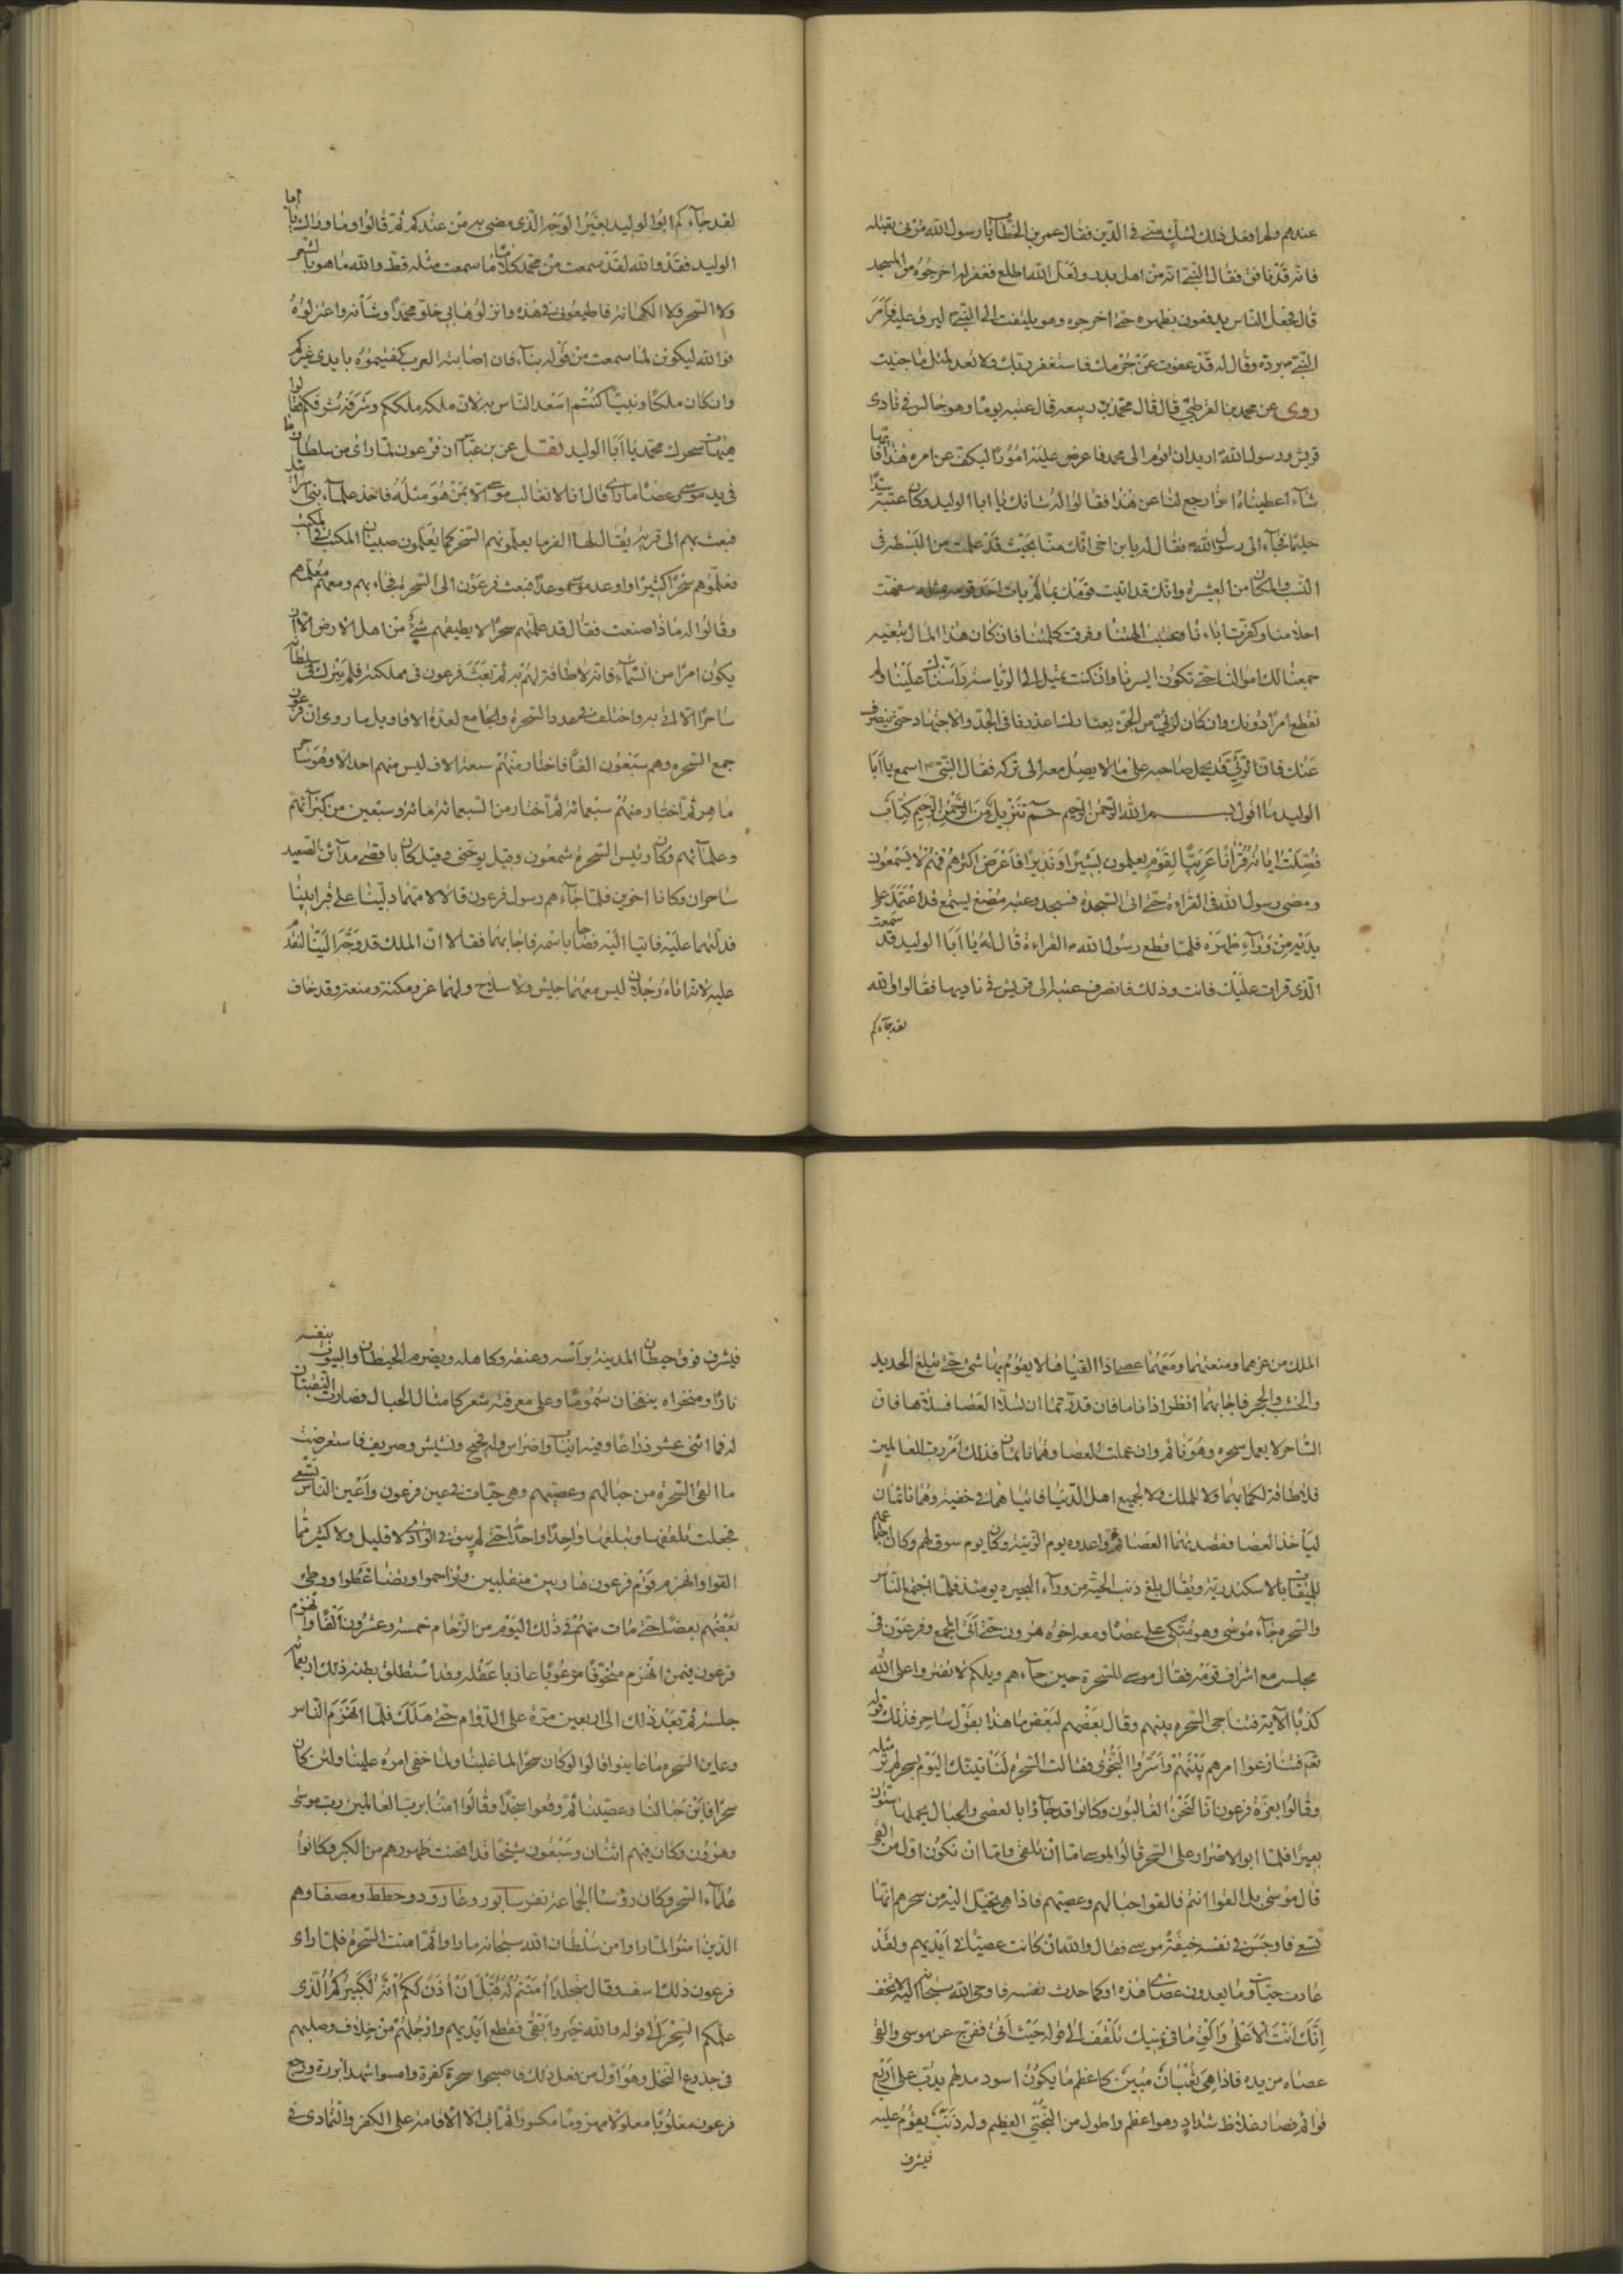 عندهم ولم افعل ذلك لشك منى فى الدين فقال عمر بن الخطاب يا رسول الله مرنى بقتله
فانه قد نافق فقال النبى انه من اهل بدر ولعل الله اطلع فغفر لهم اخرجوه من المسجد
قال فجعل الناس يدفعون بظهره حتى اخرجوه وهو يلتفت الى النبى ليرق عليه فامر
النبى برده وقال له قد عفوت عن جرمك فاستغفر ربك ولا تعد لمثل ما جنيت
روى عن محمد بن القرظى قال قال محمد بن ربيعه قال عتبه يوما وهو جالس فى نادى
قريش ورسول الله اريد ان اقوم الى محمد فاعرض عليه امورا ليكف عن امره هذا فايها
شاء اعطيناه او ارجع لنا عن هذا فقالوا له شانك يا ابا الوليد وكان عتبه سيدا
حليما فجاء الى رسول الله فقال له يا بن اخى انك منا بحيث قد علمت من البسطه فى
النسب والمكان من العشيره وانك قد اتيت قومك بما لم يات احد قومه مثله سفهت
احلامنا وكفرت اباءنا وعبت الهتنا وفرقت كلمتنا فان كان هذا المال تبتغيه
جمعنا لك اموالنا حتى تكون ايسرنا وان كنت تميل الى الرياسه رأسناك علينا ولم
نقطع امرا دونك وان كان لرئى من الجن بعثنا لنا عذرنا فى الجد والاجتهاد حتى ينصرف
عنك فان الرئى قد يحمل صاحبه على ما لا يصل معه الى تركه فقال النبى اسمع يا ابا
الوليد ما اقول بسم الله الرحمن الرحيم حم تنزيل من الرحمن الرحيم كتاب
فصلت اياته قرانا عربيا لقوم يعلمون بشيرا ونذيرا فاعرض اكثرهم فهم لا يسمعون
ومضى رسول الله فى القراءة حتى اتى السجدة فسجد وعتبه مصغ يستمع قد اعتمد على
يديه من وراء ظهره فلما قطع رسول الله القراءة قال له يا ابا الوليد قد سمعت
الذى قرات عليك فانت وذلك فانصرف عتبه الى قريش فى ناديها فقالوا والله
لقد جاءكم
لقد جاءكم ابوا لوليد بغير الوجه الذى مضى به من عندكم ثم قالوا وما وراك يا اما
الوليد فقد والله لقد سمعت من محمد كلاما ما سمعت مثله قط والله ما هو بالشعر
ولا السحر ولا الكهانه فاطيعونى فى هذه وانزلوها بى خلو محمدا وشأنه واعتزلوه
فوالله ليكونن لما سمعت من قوله نبأ فان اصابته العرب كفيتموه بايدى غيركم
وان كان ملكا او نبيا كنتم اسعد الناس به لان ملكه ملككم وشرفه شرفكم فقالوا
هيهات سحرك محمد يا ابا الوليد نقل عن بن عباس ان فرعون لما راى من سلطان ما
فى يد موسى وعصاه ما راى قال انا لا نغالب موسى الا بمن هو مثله فاخذ علماء بنى اسرائيل
فبعث بهم الى قريه يقال لها الفرما يعلمونهم السحر كما يعلمون صبيان المكتب فى المكتب
فعلموهم سحرا كثيرا واوعد موسى موعدا فبعث فرعون الى السحره فجاء بهم ومعهم معلمهم
وقالوا له ماذا صنعت فقال قد علمتهم سحرا لا يطيقهم شئ من اهل الارض الا ان
يكون امرا من السماء فانه لا طاقة لهم به ثم بعث فرعون فى مملكته فلم يترك فى سلطانه
ساحرا الا اتى به واختلف فى عدد السحره والجامع لعدة الاقاويل ما روى ان فرعون
جمع السحره وهم سبعون الفا فاختار منهم سبعه الاف ليس منهم احد الا وهو ساحر
ماهر ثم اختار منهم سبعمائه ثم اختار من السبعمائه مائه وسبعين من كبرآئهم
وعلمائهم وكان رئيس السحرة شمعون وقيل يوحنى وقيل كان باقصى مدآئن الصعيد
ساحران وكانا اخوين فلما جاءهم رسول فرعون قالا لامهما دلينا على قبر ابينا
فدلتهما عليه فاتيا اليه فصاحا باسمه فاجابهما فقالا ان الملك قد وجه الينا لنقدم
عليه لانه اتاه رجلان ليس معهما جيش ولا سلاح ولهما عز ومكنة ومنعه وقد خاف
الملك من عزهما ومنعتهما ومعهما عصا اذا القياها لا يقوم بها شئ حتى تبلغ الحديد
والخشب والحجر فاجابهما انظرا اذا ناما فان قدرتما ان تسلا العصا فسلاها فان
الساحر لا يعمل سحره وهو نائم وان عملت العصا وهما نائمان فذلك امر رب العالمين
فلا طاقة لكما بهما ولا للملك ولا لجميع اهل الدنيا فاتيا هما فى خفيه وهما نائمان
ليأخذ العصا فقصدتهما العصا ثم واعدوه يوم الزينه وكان يوم سوق لهم وكان اجتماعهم
للميقات بالاسكندريه ويقال بلغ ذنب الحيه من ورآء البحيره يومئذ فلما اجتمع الناس
والسحره جاء موسى وهو متكى على عصا ومعه اخوه هرون حتى اتى الجمع وفرعون فى
مجلسه مع اشراف قومه فقال موسى للسحرة حين جآءهم ويلكم لا تفتروا على الله
كذبا الآية فتناجى السحره بينهم وقال بعضهم لبعض ما هذا بقول ساحر فذلك قوله
تعه فتنازعوا امرهم بينهم واسروا النجوى فقالت السحره لنأتينك اليوم بسحر لم تر مثله
وقالوا بعزة فرعون انا لنحن الغالبون وكانوا قد جاؤا بالعصى والحبال يحملها ستون
بعيرا فلما ابوا الاصرار على السحر قالوا لموسى اما ان تلقى واما ان نكون اول من القى
قال موسى بل القوا انتم فالقوا حبالهم وعصيهم فاذا هى تخيل اليه من سحرهم انها
تسعى فاوجس فى نفسه خيفة موسى فقال والله ان كانت عصيا فى ايديهم ولقد
عادت حيات وما يعدون عصاى هذه او كما حدث نفسه فاوحى الله سبحانه اليه لا تخف
انك انت الاعلى والق ما فى يمينك تلقف الى قوله حيث اتى ففرج عن موسى والقى
عصاه من يده فاذا هى ثعبان مبين كاعظم ما يكون اسود مدلهم يدب على اربع
قوائم قصار غلاظ شداد وهو اعظم واطول من البختى العظيم وله ذنب يقوم عليه
فيشرف
فيشرف فوق حيطان المدينه برأسه وعنقه وكاهله ويضرم الحيطان والبيوت بنفسه
نارا ومنخراه ينفخان سموما وعلى معرفته شعر كامثال الحبال وصارت الشعبتان
له فما اثنى عشر ذراعا وفيه انياب واضراس وله فحيح ونشيش وصريف فاستعرضت
ما القى السحرة من حبالهم وعصيهم وهى حيات فى عين فرعون واعين الناس تسعى
فجعلت تلقفها وتبلعها واحدا واحدا حتى لم يبق فى الوادى لا قليل ولا كثير مما
القوا وانهزم قوم فرعون هاربين منقلبين وتزاحموا وتضاغطوا ووطئ
بعضهم بعضا حتى مات منهم فى ذلك اليوم من الزحام خمسة وعشرون الفا وانهزم
فرعون فيمن انهزم منخوفا مرعوبا عازبا عقله وقد استطلق بطنه ذلك اربعمائه
جلسه ثم بعد ذلك الى اربعين مرة على الدوام حتى هلك فلما انهزم الناس
وعاين السحره ما عاينوا قالوا لو كان سحرا لما غلبنا ولما خفى امره علينا ولئن كان
سحرا فاين حبالنا وعصينا ثم وقعوا سجدا وقالوا امنا برب العالمين رب موسى
وهرون وكان فيهم اثنان وسبعون شيخا قد انحنت ظهورهم من الكبر وكانوا
علماء السحر وكان رؤسا الجماعه نفر سابور وعارور و وحطط ومصفا وهم
الذين امنوا لما راوا من سلطان الله سبحانه ما راوا ثم امنت السحرة فلما راى
فرعون ذلك اسف وقال متجلدا امنتم له قبل ان اذن لكم انه لكبيركم الذى
علمكم السحر الى قوله والله خير وابقى فقطع ايديهم وارجلهم من خلاف وصلبهم
فى جذوع النخل وهو اول من فعل ذلك فاصبحوا سحرة كفرة وامسوا شهداء بررة ورجع
فرعون مغلوبا معلولا مهزوما مكسورا ثم ابى الا الاقامة على الكفر والتمادى فى